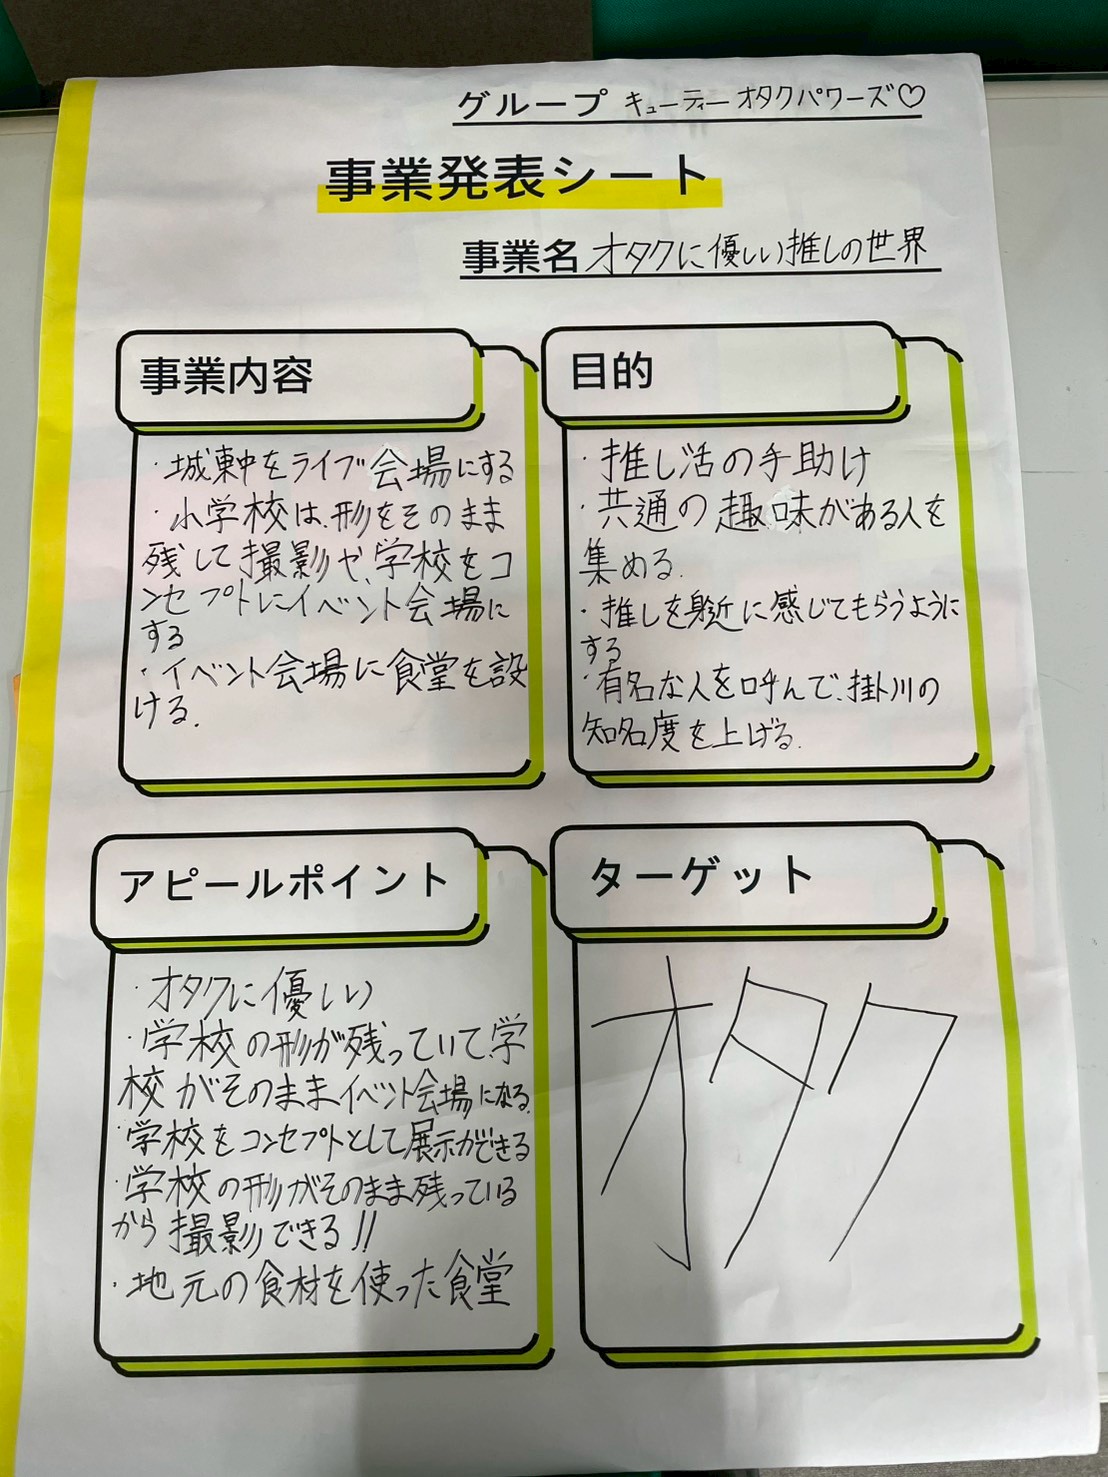 グループ キューティー オタクパワーズ♡
事業発表シート
事業名 オタクに優しい推しの世界
事業内容
・城東中をライブ会場にする
・小学校は、形をそのまま
残して撮影や、学校をコ
ンセプトにイベント会場に
する
・イベント会場に食堂を設
ける.
目的
・推し活の手助け
・共通の趣味がある人を
集める.
・推しを身近に感じてもらうように
する
・有名な人を呼んで、掛川の
知名度を上げる.
アピールポイント
・オタクに優しい
・学校の形が残っていて、学
校がそのままイベント会場になる.
・学校をコンセプトとして展示ができる
・学校の形がそのまま残っている
から撮影できる!!
・地元の食材を使った食堂
ターゲット
オタク